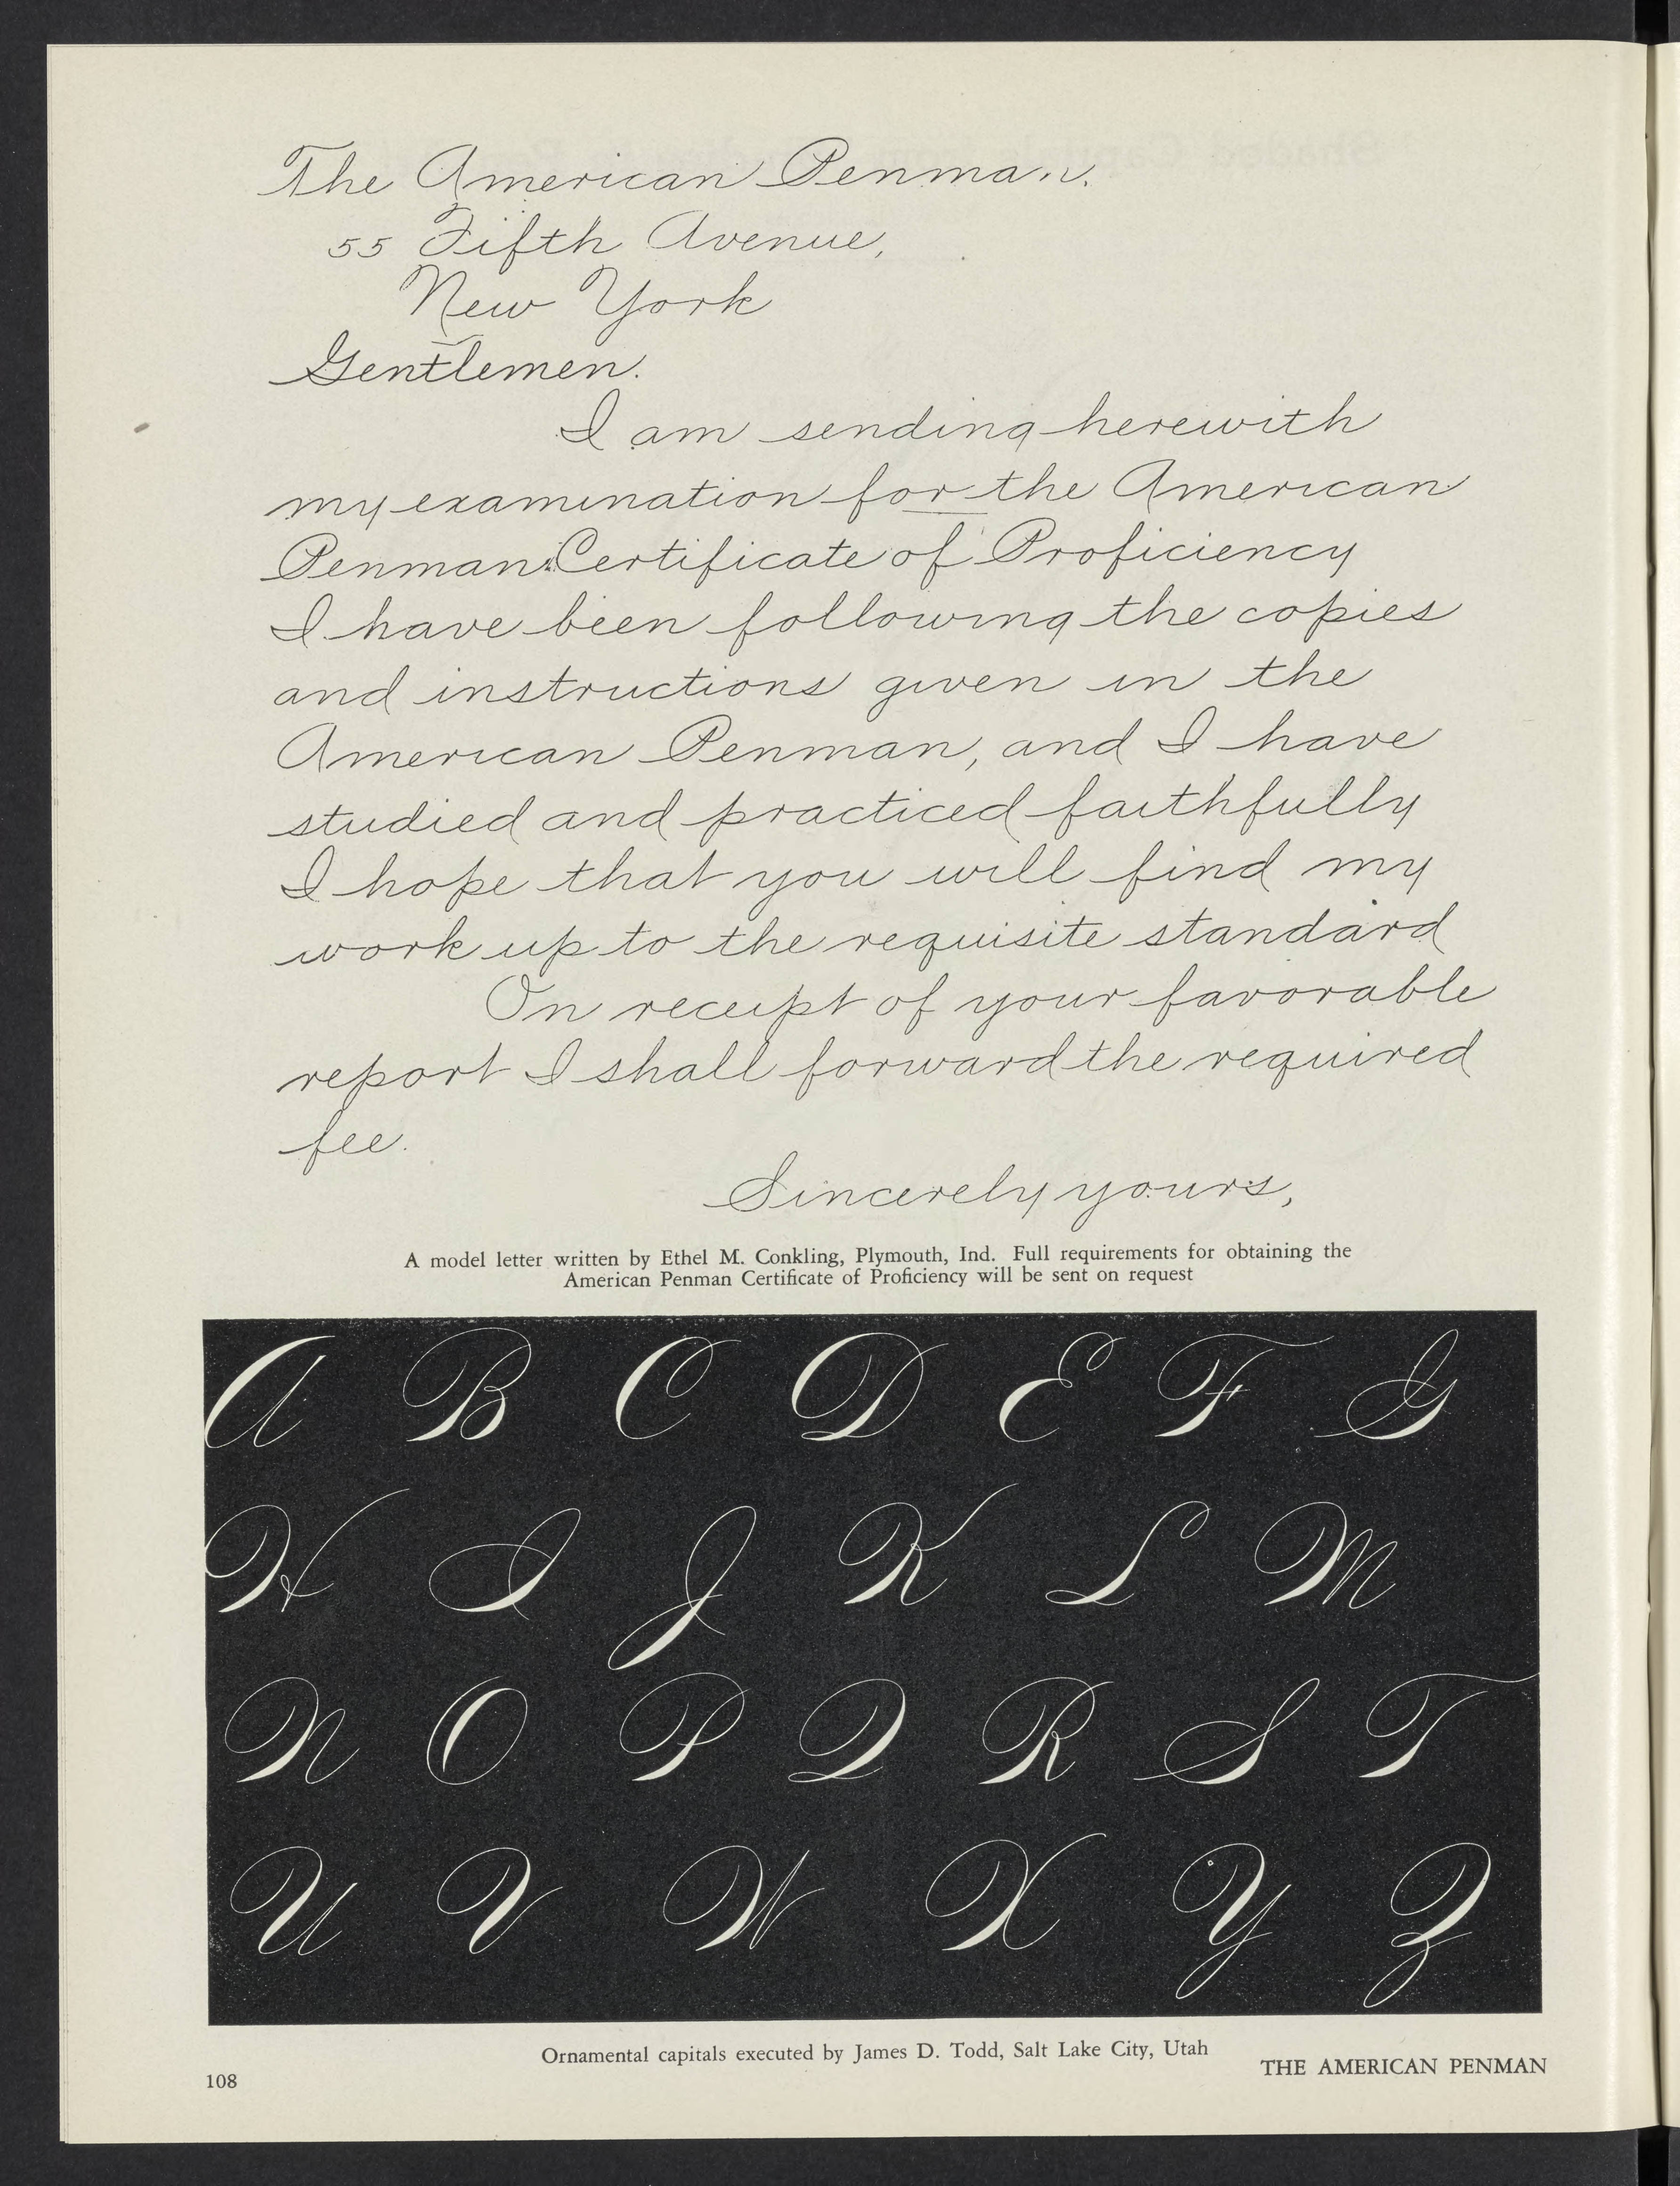 The American Penman.
55 Fifth Avenue,
New York
Gentlemen.
I am sending herewith
my examination for the American
Penman Certificate of Proficiency
I have been following the copies
and instructions given in the
American Penman, and I have
studied and practiced faithfully
I hope that you will find my
work up to the requisite standard
On receipt of your favorable
report I shall forward the required
fee.
Sincerely yours,
A model letter written by Ethel M. Conkling, Plymouth, Ind. Full requirements for obtaining the
American Penman Certificate of Proficiency will be sent on request
A B C D E F G
H I J K L M
N O P Q R S T
U V W X Y Z
Ornamental capitals executed by James D. Todd, Salt Lake City, Utah
108
THE AMERICAN PENMAN